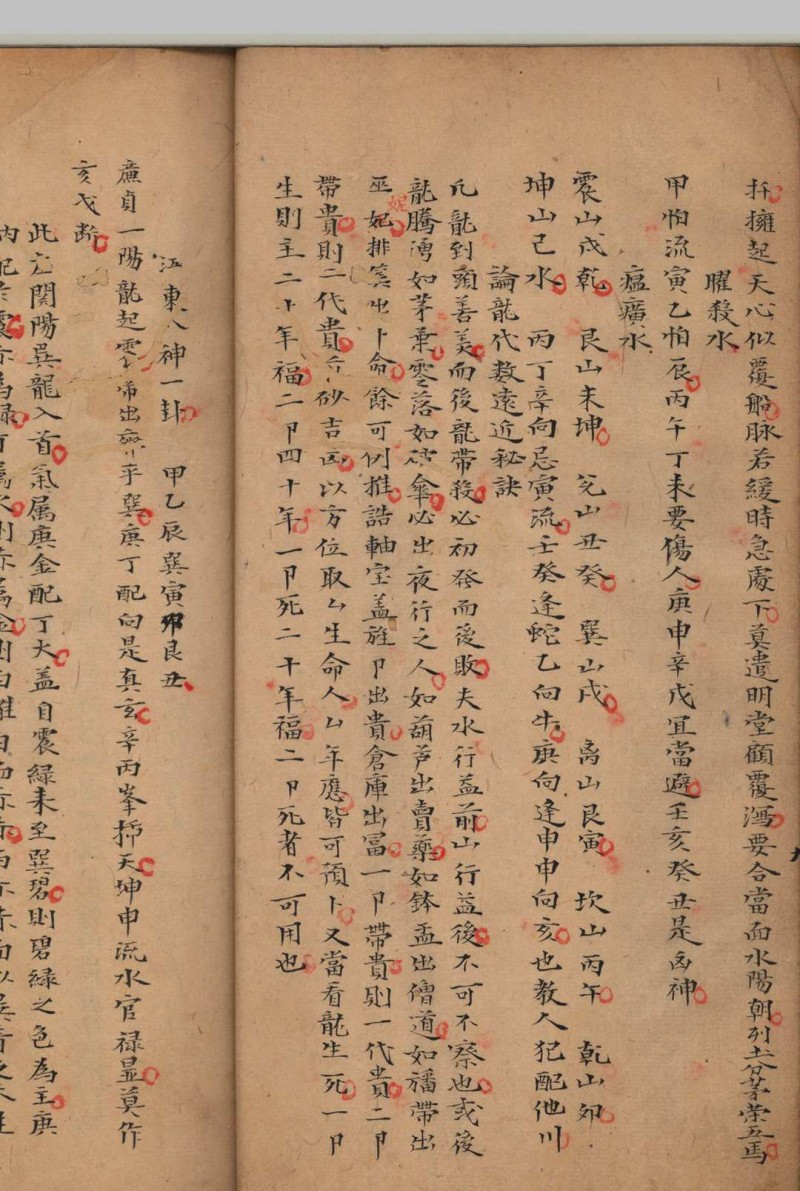 拆擁起天心似覆船脉若緩時急處下莫遣明堂顧覆鴻要合當面水陽朝列土分茅榮五馬
曜殺水
甲怕流寅乙怕辰丙午丁未要傷人庚申辛戌宜當避壬亥癸丑是凶神
瘟㾮水
震山戌乾 艮山未坤 兌山丑癸 巽山戌 离山艮寅 坎山丙午 乾山卯
坤山己水 丙丁辛向忌寅流壬癸逢蛇乙向牛庚向逢申申向亥也教人犯配他川
論龍代数遠近秘訣
凡龍到頭善美而後龍帶殺必初發而後敗夫水行益前山行益後不可不察也或後
龍騰湧如茅束零落如傘必出夜行之人如葫芦出賣藥如鉢盂出僧道如旛帶出
巫妃排出卜命餘可例推誥軸宝盖旌卩出貴倉庫出富一卩帶貴則一代貴二卩
帶貴則二代貴砂吉凶以方位取厶生命人厶年應皆可預卜又當看龍生死一卩
生則主二十年福二卩四十年一卩死二十年福二卩死者不可用也
江東八神一卦 甲乙辰巽寅卯艮丑
廉貞一陽龍起出乎巽庚丁配向是真玄辛丙峯揷天坤申流水官禄显莫作
亥戈断
此宝関陽巽龍入首氣属庚金配丁火盖自震緑未至巽碧則碧緑之色為主庚